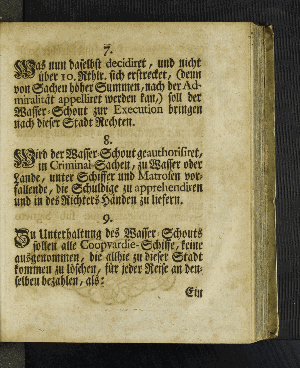 7.
Was nun daselbst decidiret, und nicht
über 10. Rthlr. sich erstrecket, (denn
von Sachen höher Summen, nach der Ad-
miralität appelliret werden kan,) soll der
Wasser-Schout zur Execution bringen
nach dieser Stadt Rechten.
8.
Wird der Wasser-Schout geauthorisiret,
in Criminal-Sachen, zu Wasser oder
Lande, unter Schiffer und Matrosen vor-
fallende, die Schuldige zu apprehendiren
und in des Richters Händen zu liefern.
9.
Zu Unterhaltung des Wasser-Schouts
sollen alle Coopvardie-Schiffe, keine
ausgenommen, die allhie zu dieser Stadt
kommen zu löschen, für jeder Reise an den-
selben bezahlen, als:
Ein